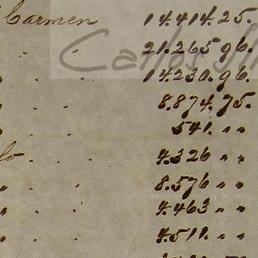 Carmen 14.414.25.
" " 21.265.96.
" " 14.230.96.
" " 8.874.75.
" " 541. " "
" " 4.326 " "
" " 8.576 " "
" " 4.463 " "
" " 4.511. " "
Carlos